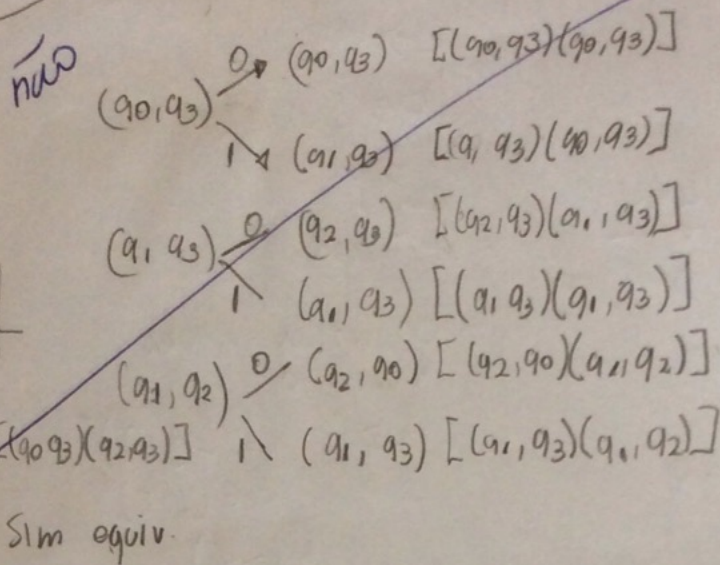 não
0 (q0, q3) [(q0, q3)(q0, q3)]
(q0, q3)
1 (q1, q3) [(q1 q3)(q0, q3)]
0 (q2, q3) [(q2, q3)(q1, q3)]
(q1 q3)
1 (q1, q3) [(q1 q3)(q1, q3)]
0 (q2, q0) [(q2, q0)(q1, q2)]
(q1, q2)
[(q0 q3)(q2, q3)] 1 (q1, q3) [(q1, q3)(q1, q2)]
Sim equiv.